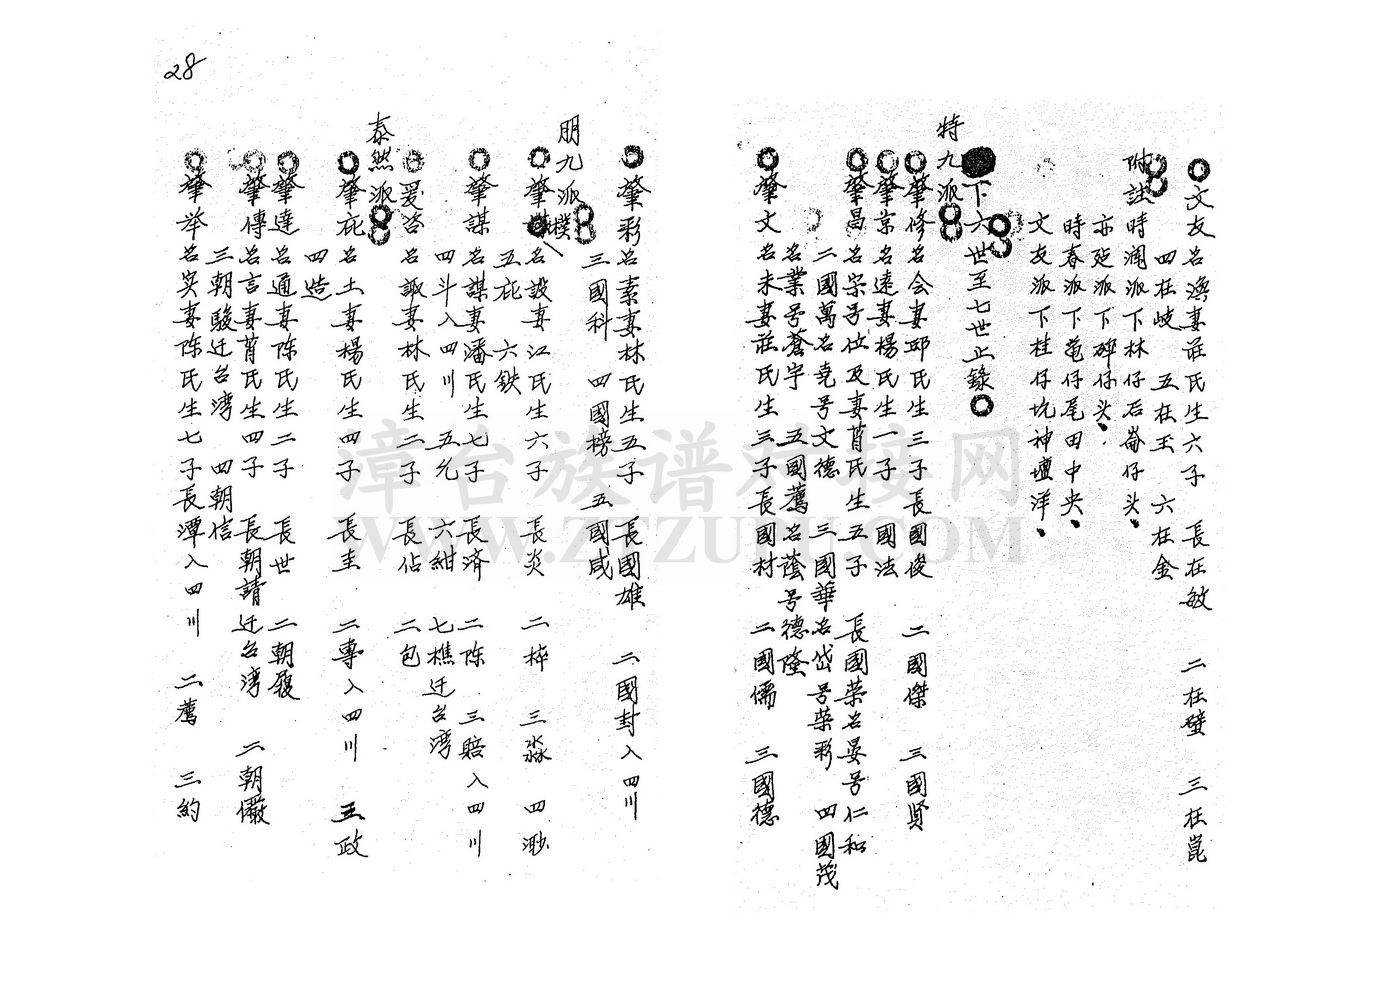 文友名漁妻莊氏生六子 長在敏 二在璧 三在崑
四在岐 五在玉 六在金
附註時澗派下林仔石崙仔头、
亦廷派下碑仔头、
時春派下菴仔尾田中央、
文友派下桂仔坑神壇洋、
下六世至七世止錄
特九派
肇修名会妻邱氏生三子長國俊 二國傑 三國賢
肇京名遠妻楊氏生一子 國法
肇昌名宗号位及妻莆氏生五子 長國荣名晏号仁和
二國萬名尭号文德 三國華名岱号荣彩 四國茂
名業号蒼宇 五國薦名蔭号德隆
肇文名未妻莊氏生三子長國材 二國儒 三國德
肇彩名素妻林氏生五子 長國雄 二國封入四川
三國科 四國榜 五國咸
朋九派
肇樸名設妻江氏生六子 長炎 二梓 三淼 四渺
五庇 六鉄
肇謀名謀妻潘氏生七子 長済 二陈 三賠入四川
四斗入四川 五允 六紺 七樵迁台湾
爰咨名諏妻林氏生二子 長佔 二包
泰然派
肇庇名土妻楊氏生四子 長圭 二專入四川 五政
四造
肇達名通妻陈氏生二子 長世 二朝履
肇傳名言妻莆氏生四子 長朝請迁台湾 二朝儼
三朝駿迁台湾 四朝信
肇举名实妻陈氏生七子長潭入四川 二薦 三約
28
漳台族谱对接网
WWW.ZTZUPU.COM